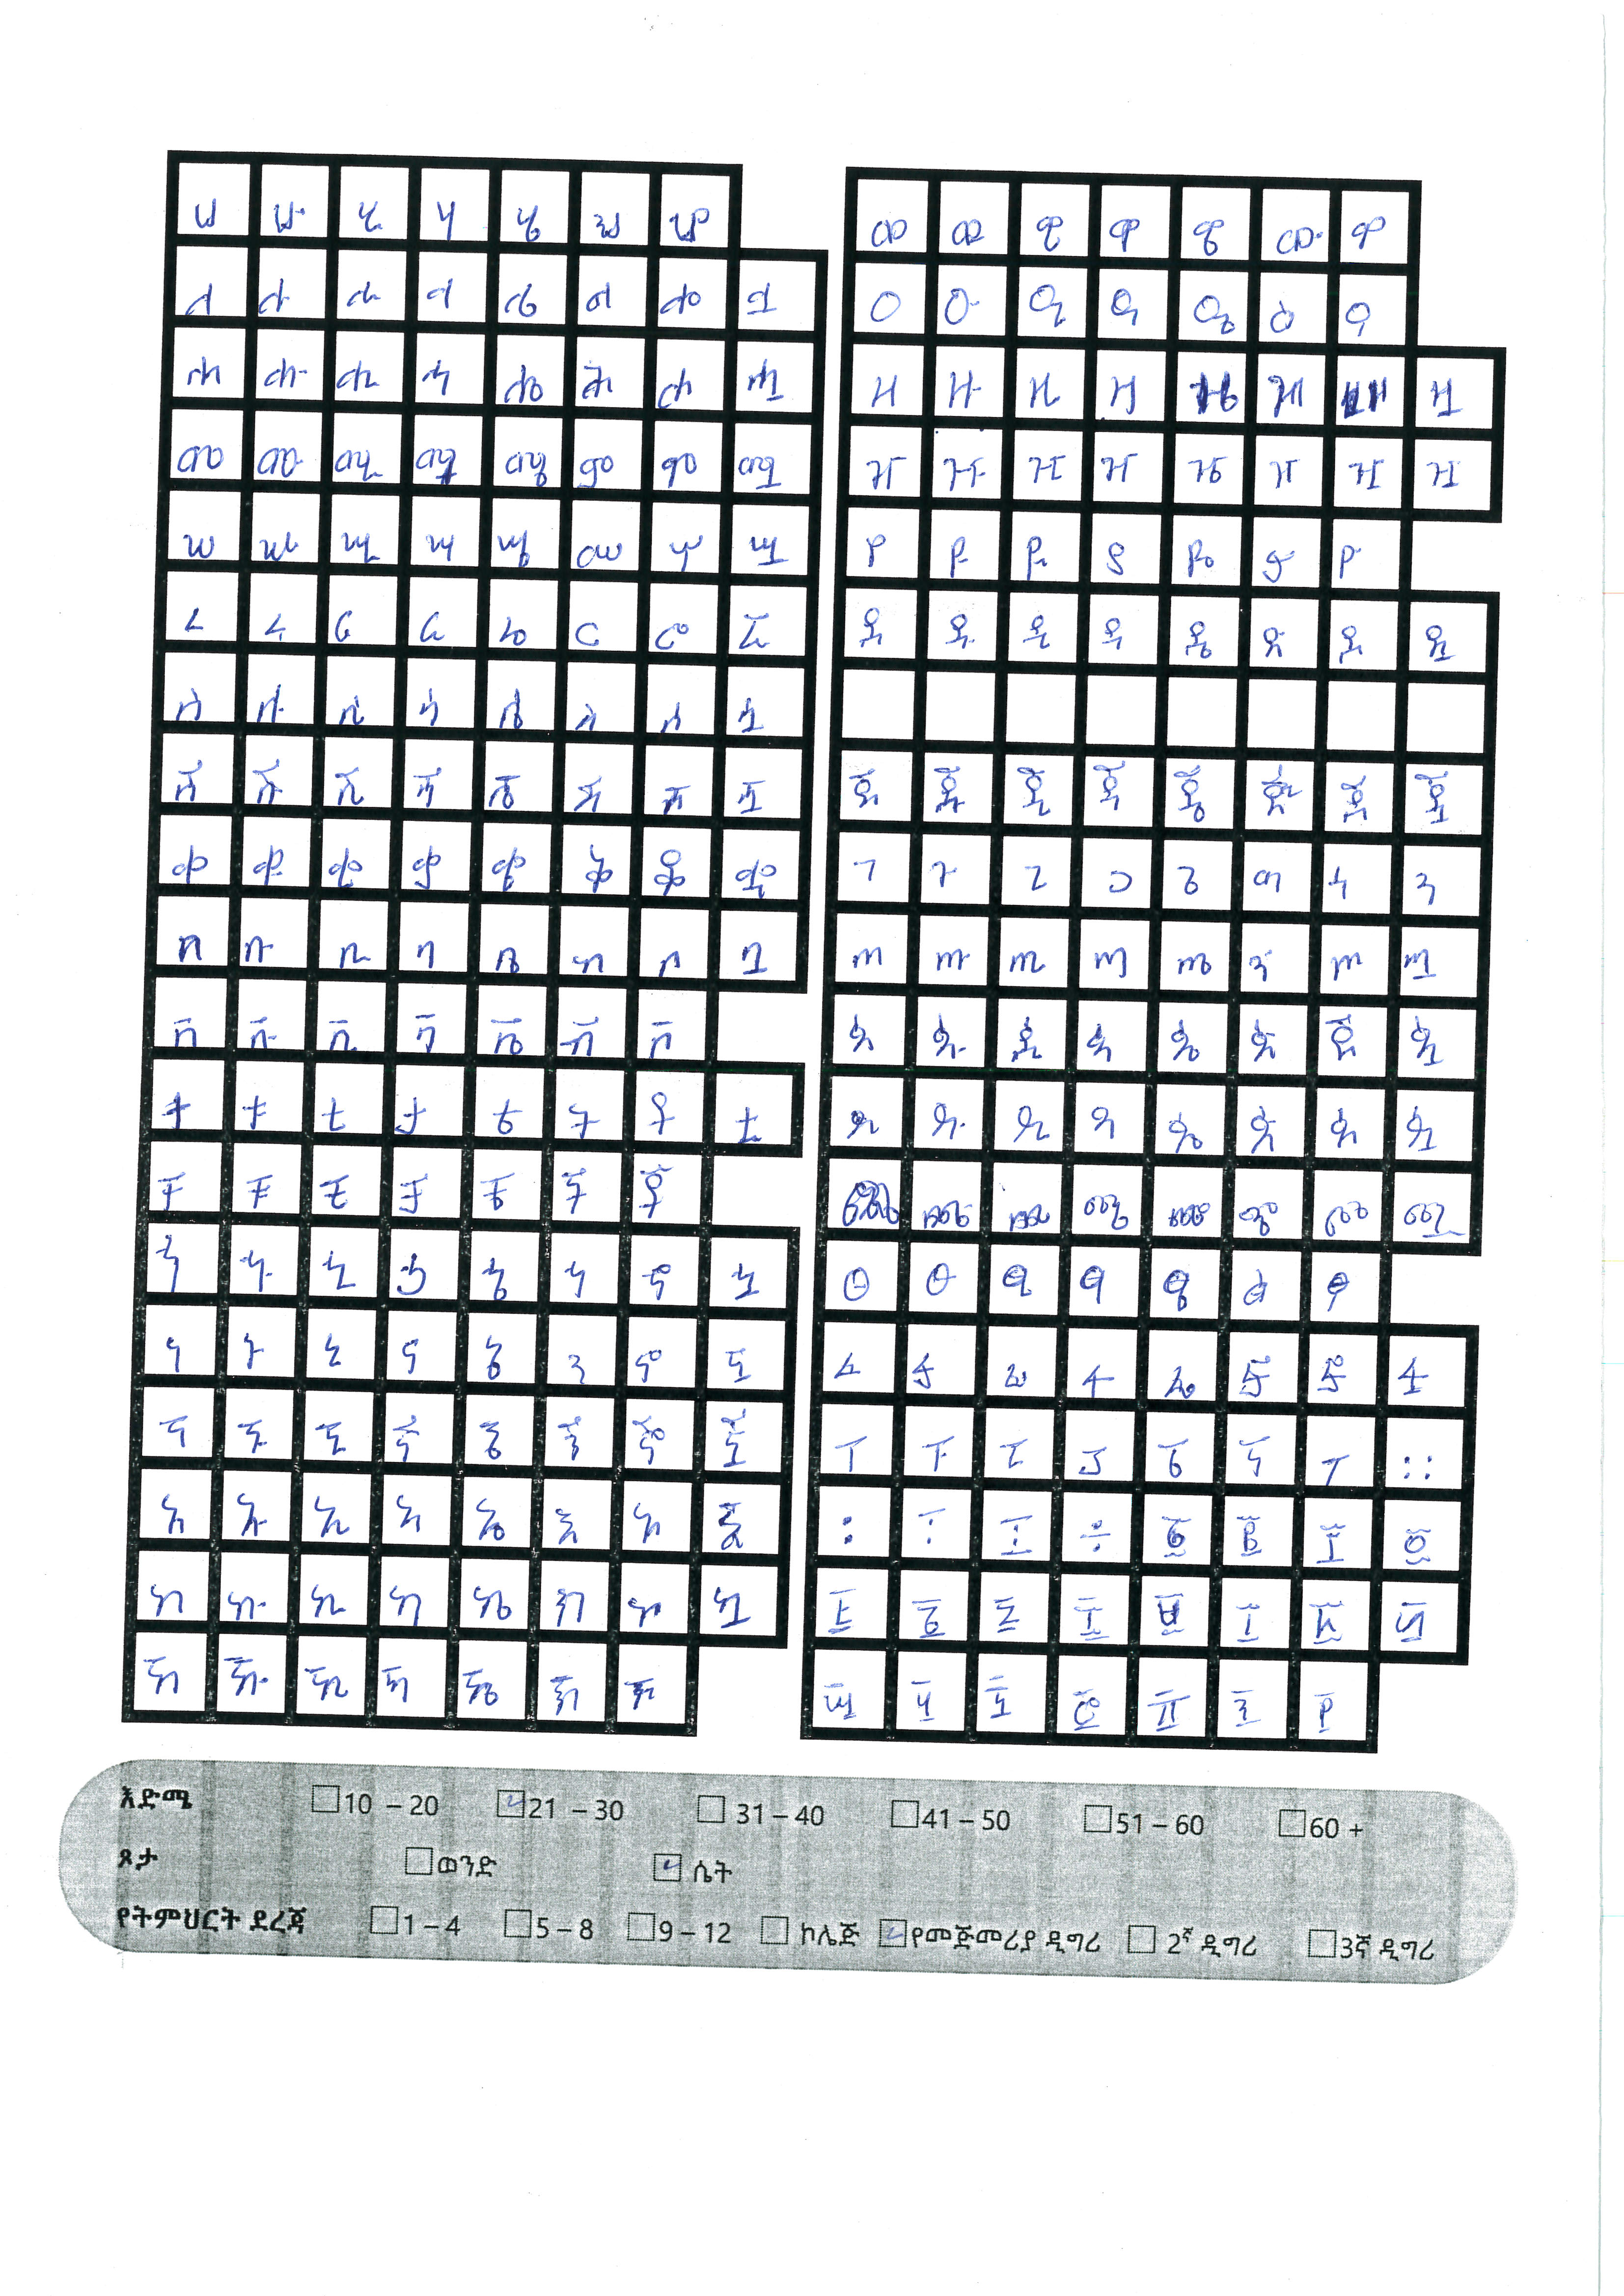 ሀ ሁ ሂ ሃ ሄ ህ ሆ
ለ ሉ ሊ ላ ሌ ል ሎ ሏ
ሐ ሑ ሒ ሓ ሔ ሕ ሖ ሗ
መ ሙ ሚ ማ ሜ ም ሞ ሟ
ሠ ሡ ሢ ሣ ሤ ሥ ሦ ሧ
ረ ሩ ሪ ራ ሬ ር ሮ ሯ
ሰ ሱ ሲ ሳ ሴ ስ ሶ ሷ
ሸ ሹ ሺ ሻ ሼ ሽ ሾ ሿ
ቀ ቁ ቂ ቃ ቄ ቅ ቆ ቋ
በ ቡ ቢ ባ ቤ ብ ቦ ቧ
ቨ ቩ ቪ ቫ ቬ ቭ ቮ
ተ ቱ ቲ ታ ቴ ት ቶ ቷ
ቸ ቹ ቺ ቻ ቼ ች ቾ
ኀ ኁ ኂ ኃ ኄ ኅ ኆ ኋ
ነ ኑ ኒ ና ኔ ን ኖ ኗ
ኘ ኙ ኚ ኛ ኜ ኝ ኞ ኟ
አ ኡ ኢ ኣ ኤ እ ኦ ኧ
ከ ኩ ኪ ካ ኬ ክ ኮ ኳ
ኸ ኹ ኺ ኻ ኼ ኽ ኾ
ወ ዉ ዊ ዋ ዌ ው ዎ
ዐ ዑ ዒ ዓ ዔ ዕ ዖ
ዘ ዙ ዚ ዛ ዜ ዝ ዞ ዟ
ዠ ዡ ዢ ዣ ዤ ዥ ዦ ዧ
የ ዩ ዪ ያ ዬ ይ ዮ
ደ ዱ ዲ ዳ ዴ ድ ዶ ዷ
ጀ ጁ ጂ ጃ ጄ ጅ ጆ ጇ
ገ ጉ ጊ ጋ ጌ ግ ጎ ጓ
ጠ ጡ ጢ ጣ ጤ ጥ ጦ ጧ
ጰ ጱ ጲ ጳ ጴ ጵ ጶ ጷ
ጸ ጹ ጺ ጻ ጼ ጽ ጾ ጿ
ጨ ጩ ጪ ጫ ጬ ጭ ጮ ጯ
ፀ ፁ ፂ ፃ ፄ ፅ ፆ
ፈ ፉ ፊ ፋ ፌ ፍ ፎ ፏ
ፐ ፑ ፒ ፓ ፔ ፕ ፖ ።
፡ ፣ ፤ ÷ ፩ ፪ ፫ ፬
፭ ፮ ፯ ፰ ፱ ፲ ፳ ፴
፵ ፶ ፷ ፸ ፹ ፺ ፻
እድሜ 10 – 20 21 – 30 31 – 40 41 – 50 51 – 60 60 +
ጾታ ወንድ ሴት
የትምህርት ደረጃ 1 – 4 5 – 8 9 – 12 ኮሌጅ የመጀመሪያ ዲግሪ 2ኛ ዲግሪ 3ኛ ዲግሪ